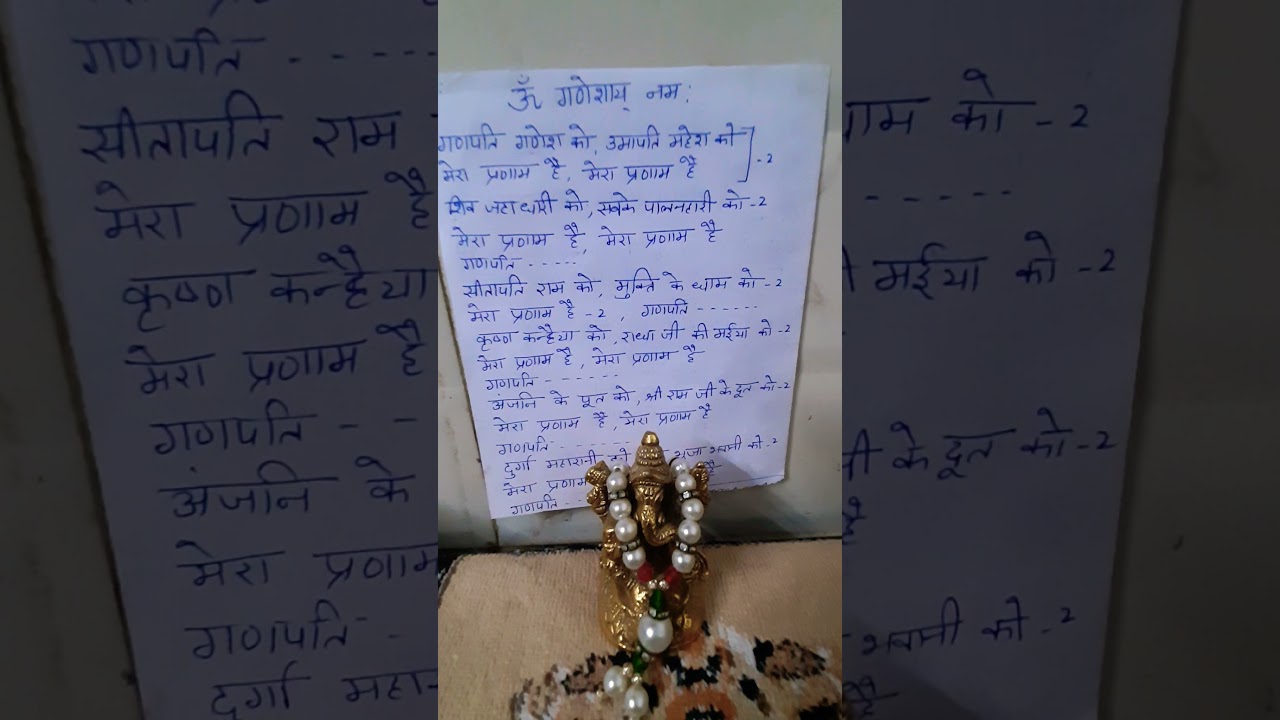 ॐ गणेशाय् नमः
गणपति गणेश को, उमापति महेश को
मेरा प्रणाम है, मेरा प्रणाम है ] -2
शिव जटाधारी को, सबके पालनहारी को -2
मेरा प्रणाम है, मेरा प्रणाम है
गणपति - - - - -
सीतापति राम को, मुक्ति के धाम को -2
मेरा प्रणाम है -2 , गणपति - - - - - -
कृष्ण कन्हैया को, राधा जी की मईया को -2
मेरा प्रणाम है, मेरा प्रणाम है
गणपति - - - - - -
अंजनि के पूत को, श्री राम जी के दूत को -2
मेरा प्रणाम है, मेरा प्रणाम है
गणपति - - - - - -
दुर्गा महारानी को भुजा भवानी को -2
मेरा प्रणाम है
गणपति - - -